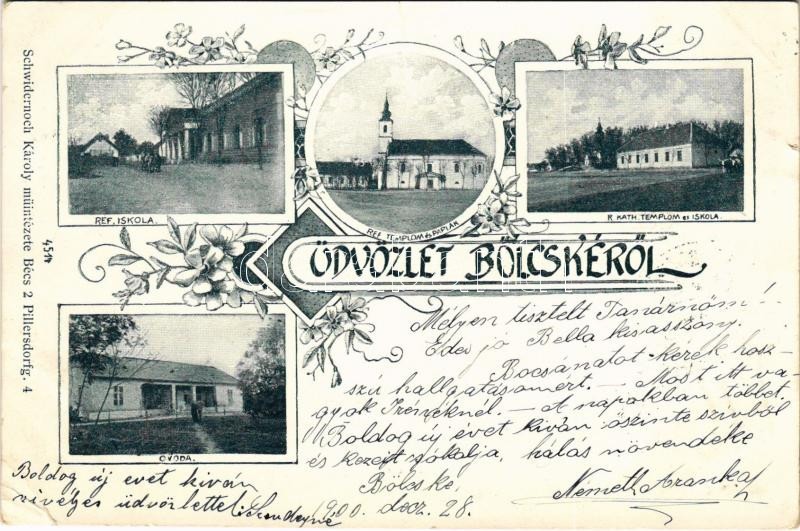 REF. ISKOLA.
REF. TEMPLOM és PAPLAK
R. KATH. TEMPLOM és ISKOLA.
ÜDVÖZLET BÖLCSKÉRŐL
ÓVODA.
Schwidernoch Károly müintézete Bécs 2 Pillersdorfg. 4
4517
Mélyen tisztelt Tanárnőm!
Édes jó Bella kisasszony.
Bocsánatot kérek hosz-
szú hallgatásomért. – Most itt va-
gyok Irénéknél. – A napokban többet.
Boldog új évet kíván őszinte szívből
és kezeit csókolja, hálás növendéke
Bölcske, 900. decz. 28. Németh Aranka
Boldog új évet kíván
szívélyes üdvözlettel: